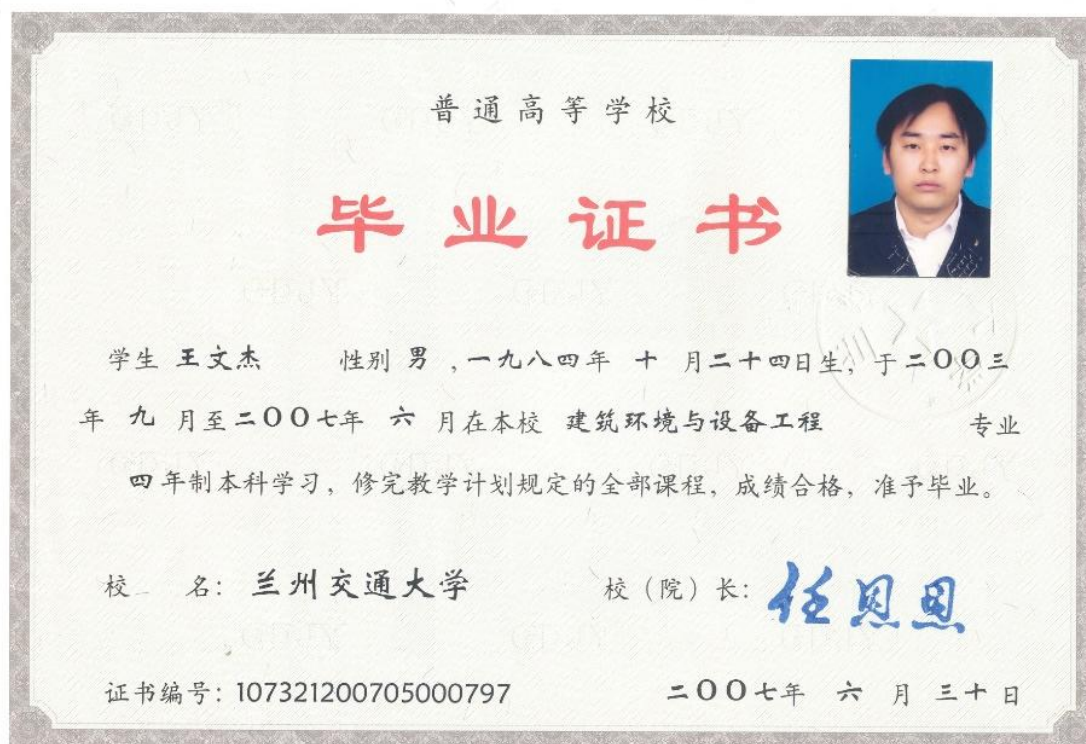 普通高等学校
毕业证书
学生 王文杰 性别 男 ,一九八四年 十 月二十四日生, 于二〇〇三
年 九 月至二〇〇七年 六 月在本校 建筑环境与设备工程 专业
四年制本科学习, 修完教学计划规定的全部课程, 成绩合格, 准予毕业。
校 名: 兰州交通大学 校 (院) 长: 任恩恩
证书编号: 107321200705000797 二〇〇七年 六 月 三十日